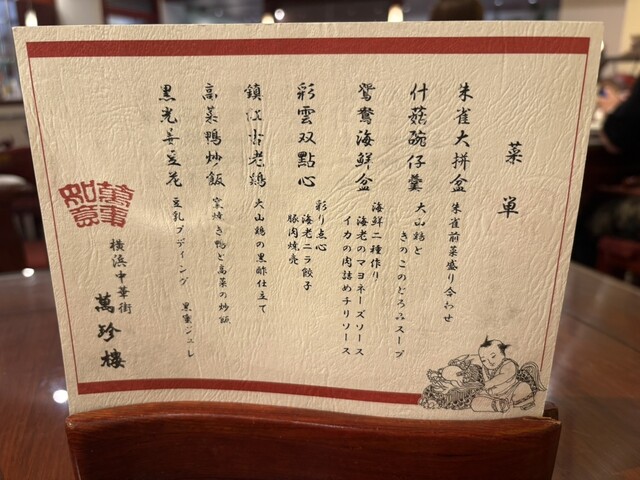 菜単
朱雀大拼盆 朱雀前菜盛り合わせ
什菇碗仔羹 大山鶏と
きのこのとろみスープ
鴛鴦海鮮盆 海鮮二種作り
海老のマヨネーズソース
イカの肉詰めチリソース
彩雲双點心 彩り点心
海老ニラ餃子
豚肉焼売
鎮江古老鶏 大山鶏の黒酢仕立て
高菜鴨炒飯 窯焼き鴨と高菜の炒飯
黒光姜豆花 豆乳プディング 黒蜜ジュレ
萬事如意
横浜中華街
萬珍樓